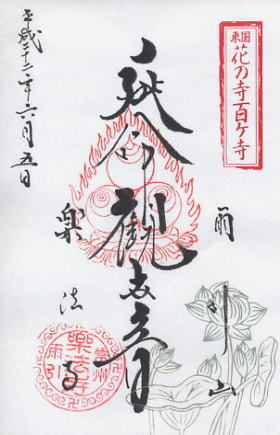 東国
花の寺百ケ寺
雨引山
延命観世音
楽法寺
平成二十二年六月五日
常州
楽法寺
雨引